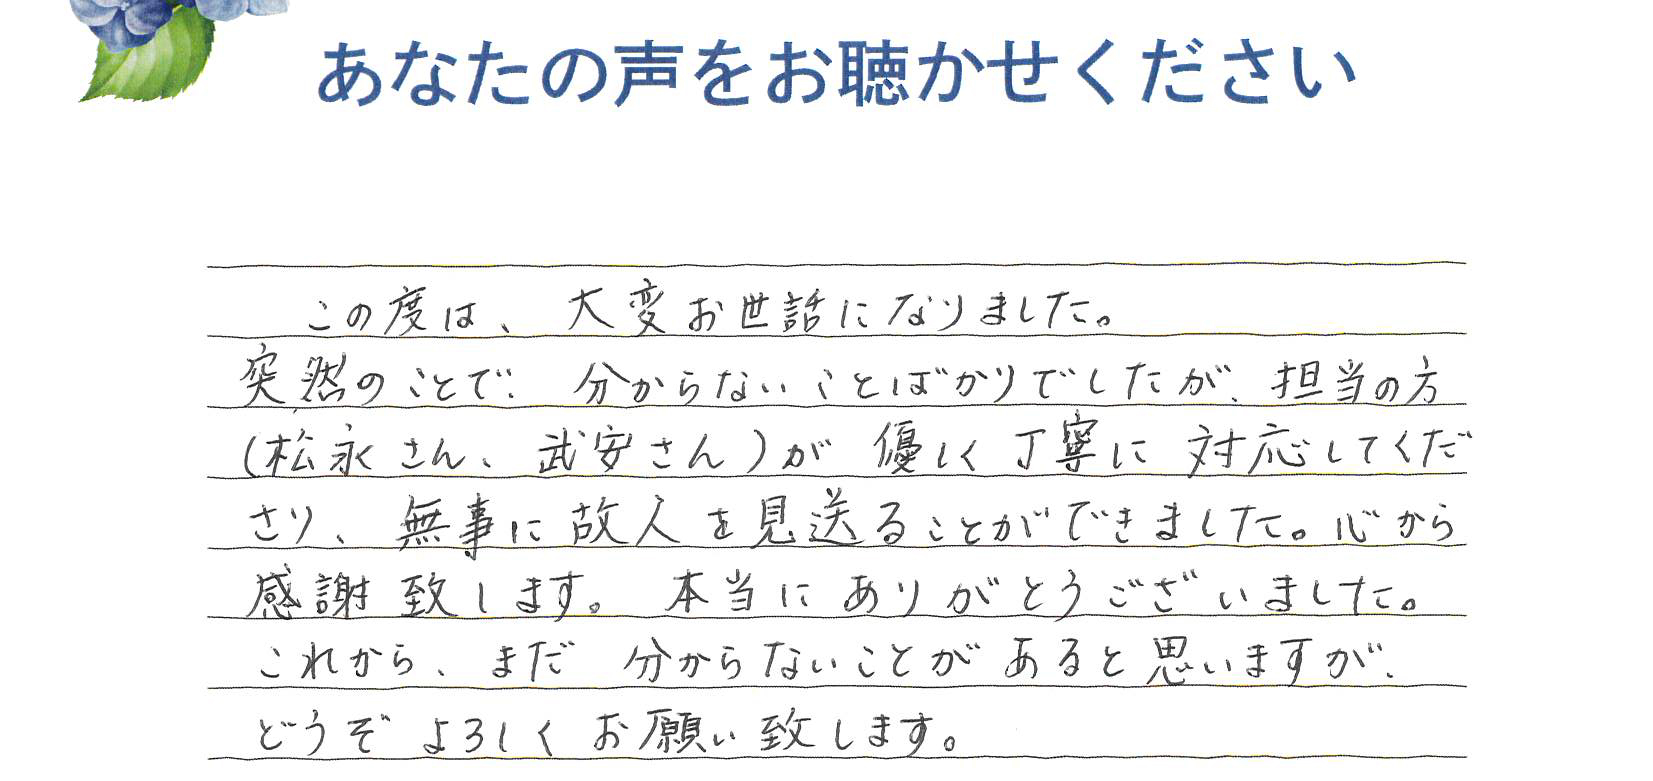 あなたの声をお聴かせください
この度は、大変お世話になりました。
突然のことで、分からないことばかりでしたが、担当の方
(松永さん、武安さん)が 優しく丁寧に 対応してくだ
さり、無事に故人を見送ることができました。心から
感謝致します。本当にありがとうございました。
これから、まだ 分からないことが あると思いますが、
どうぞ よろしく お願い致します。